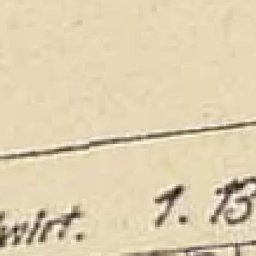 wirt. 1. 13